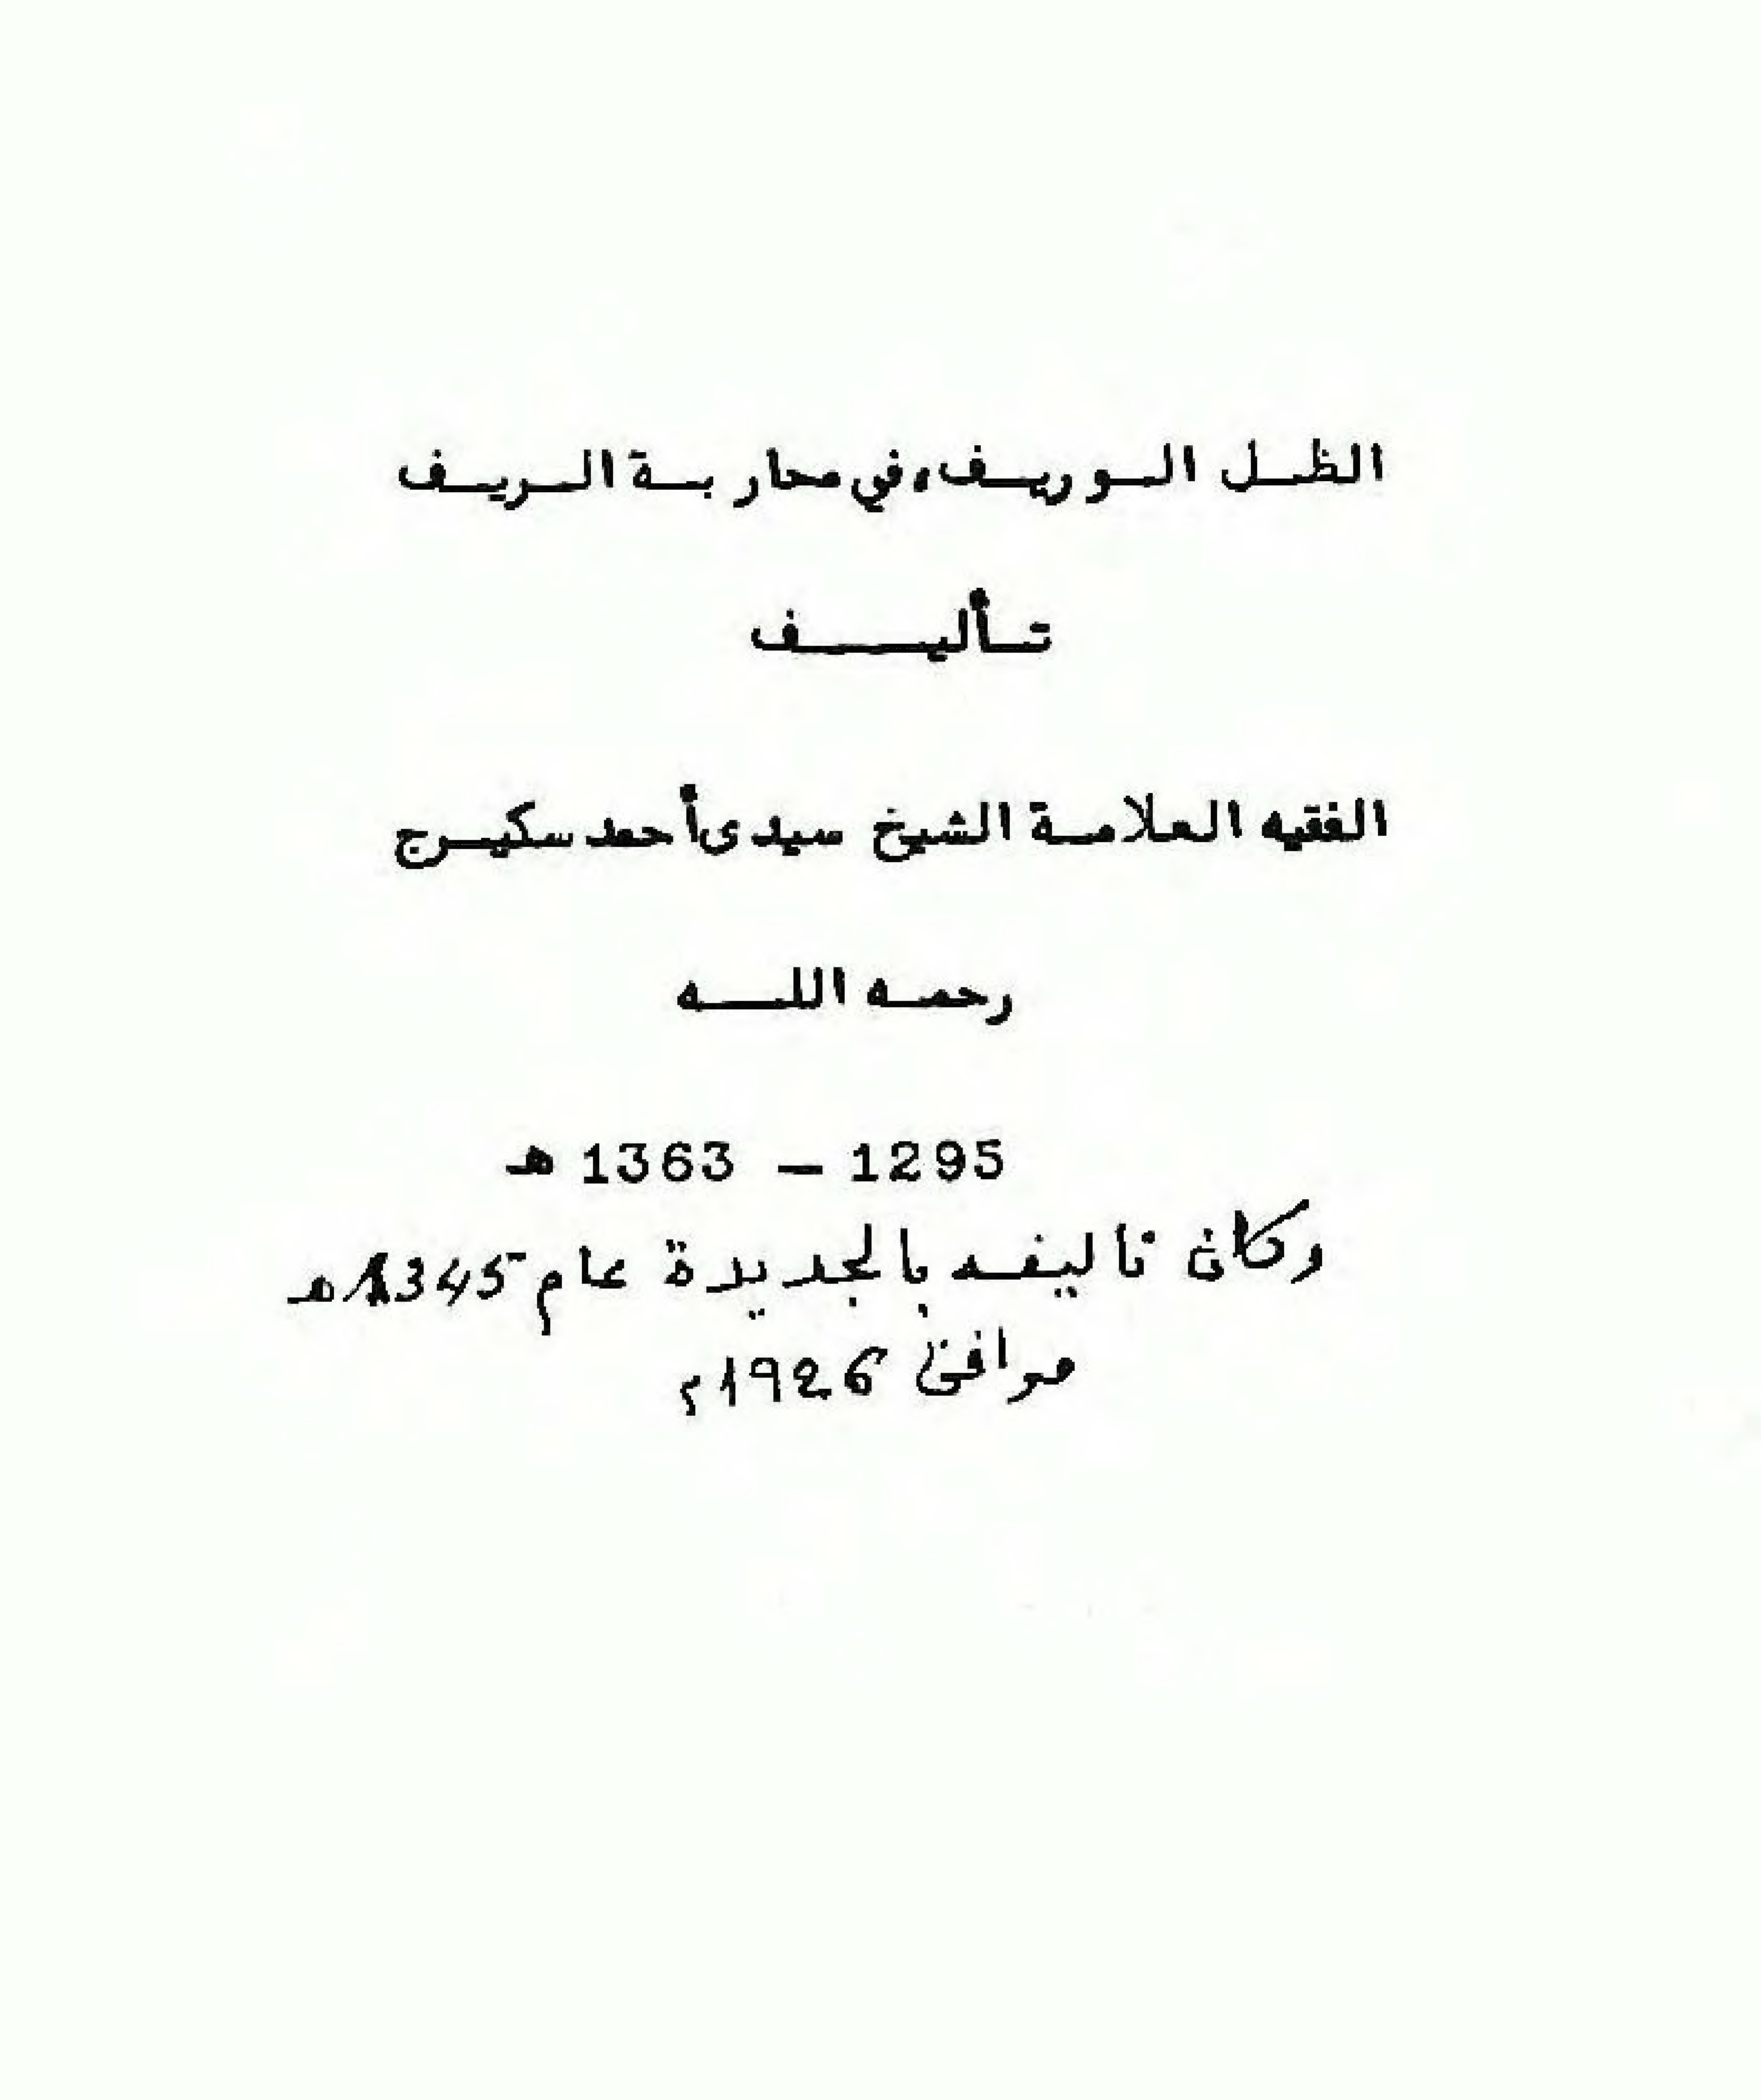 الظل الوريف، في محاربة الريف
تأليف
الفقيه العلامة الشيخ سيدى أحمد سكيرج
رحمه الله
1295 – 1363 هـ
وكان تأليفه بالجديدة عام 1345هـ
موافق 1926م